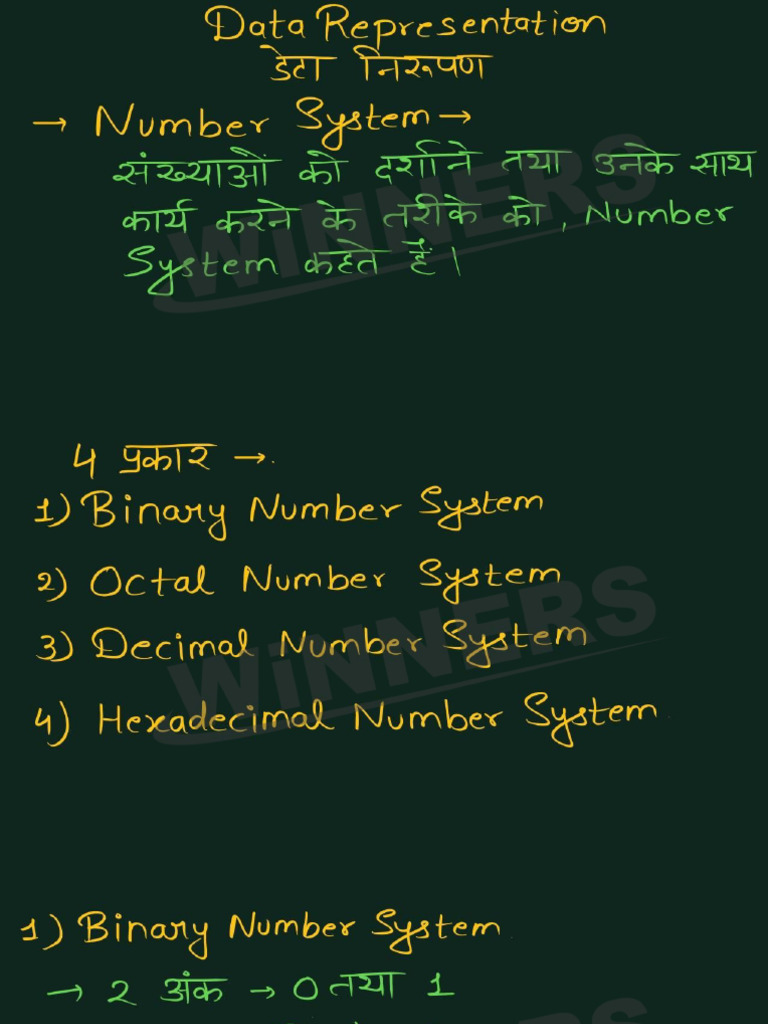 Data Representation
डेटा निरूपण
→ Number System →
संख्याओं को दर्शाने तथा उनके साथ
कार्य करने के तरीके को, Number
System कहते हैं।
4 प्रकार →
1) Binary Number System
2) Octal Number System
3) Decimal Number System
4) Hexadecimal Number System
1) Binary Number System
→ 2 अंक → 0 तथा 1
WiNNERS
WiNNERS